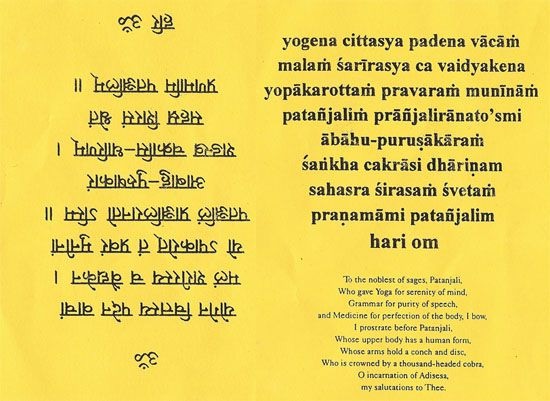 ॐ
योगेन चित्तस्य पदेन वाचां
मलं शरीरस्य च वैद्यकेन ।
यो ऽपकरोत् तं प्रवरं मुनीनां
पतञ्जलिं प्राञ्जलिरानतो ऽस्मि ॥
आबाहु-पुरुषाकारं
शङ्ख चक्रासि-धारिणम् ।
सहस्र शिरसं श्वेतं
प्रणमामि पतञ्जलिम् ॥
हरि ॐ
yogena cittasya padena vācāṁ
malaṁ śarīrasya ca vaidyakena
yopākarottaṁ pravaraṁ munīnāṁ
patañjaliṁ prāñjalirānato'smi
ābāhu-puruṣākāraṁ
śaṅkha cakrāsi dhāriṇam
sahasra śirasaṁ śvetaṁ
praṇamāmi patañjalim
hari om
To the noblest of sages, Patanjali,
Who gave Yoga for serenity of mind,
Grammar for purity of speech,
and Medicine for perfection of the body, I bow,
I prostrate before Patanjali,
Whose upper body has a human form,
Whose arms hold a conch and disc,
Who is crowned by a thousand-headed cobra,
O incarnation of Adisesa,
my salutations to Thee.